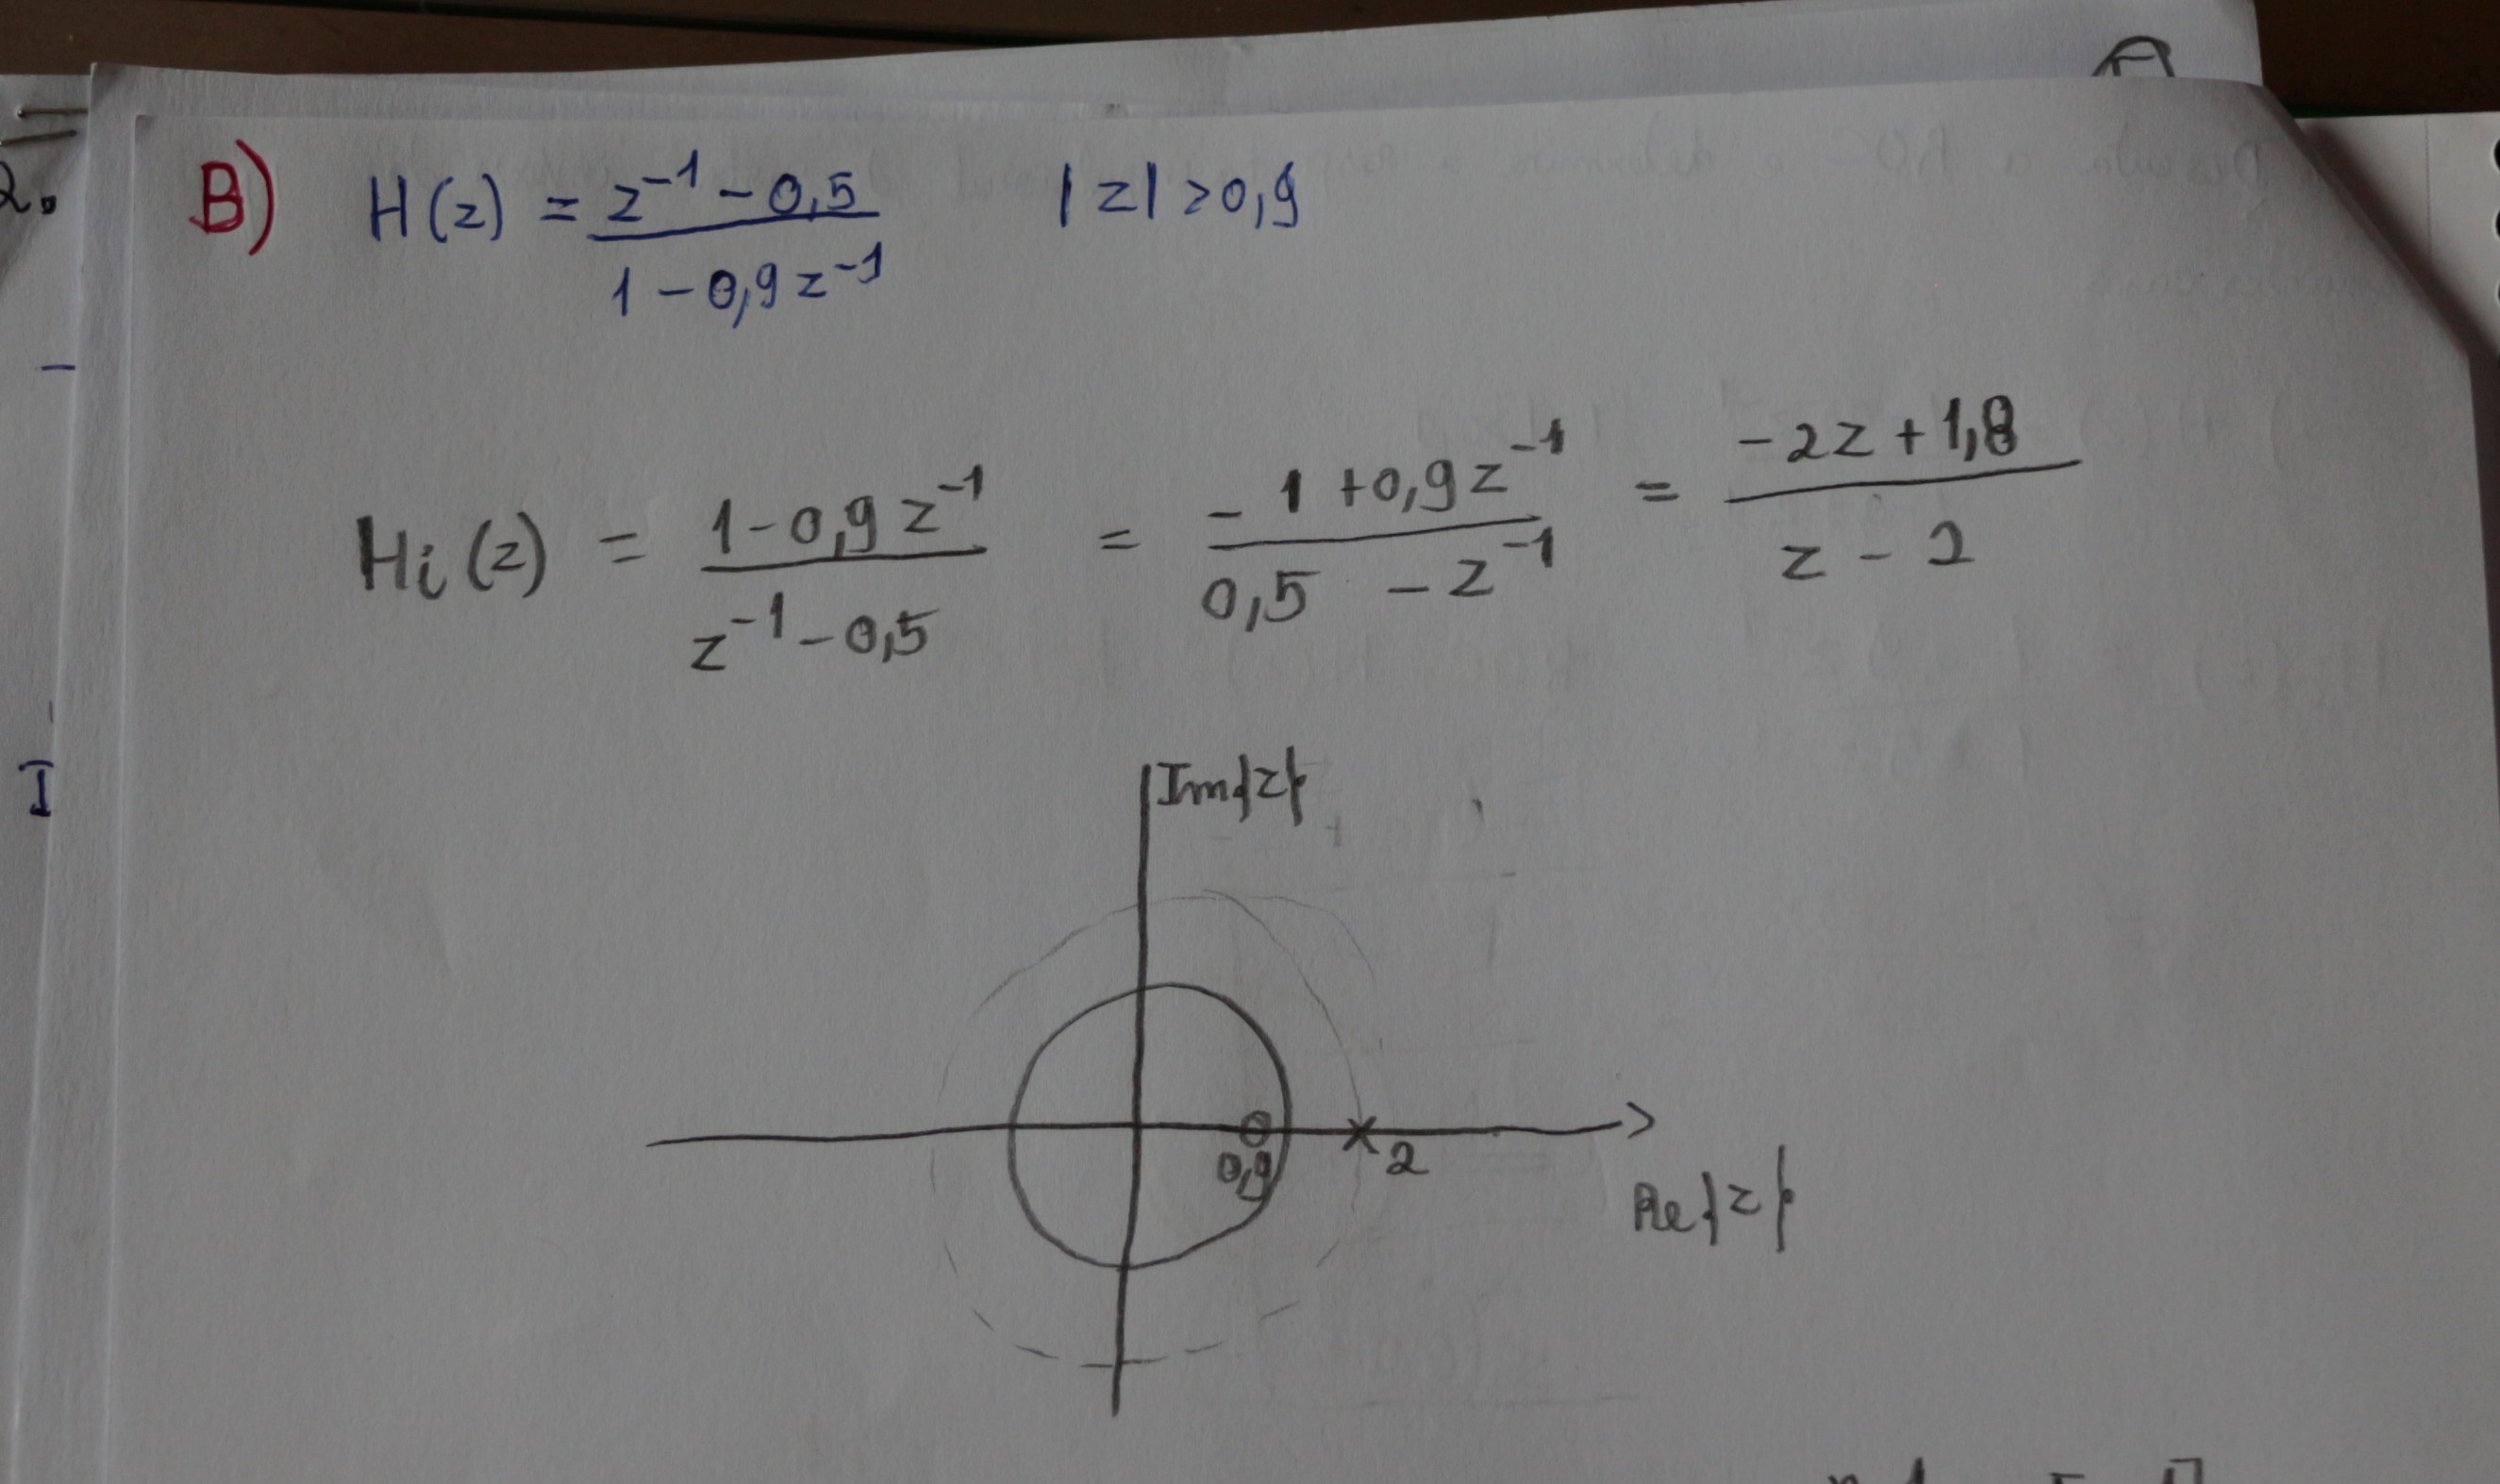 2.
B) H(z) = (z⁻¹ - 0,5) / (1 - 0,9 z⁻¹)    |z| > 0,9
Hi(z) = (1 - 0,9 z⁻¹) / (z⁻¹ - 0,5) = (-1 + 0,9 z⁻¹) / (0,5 - z⁻¹) = (-2z + 1,8) / (z - 2)
Im{z}
I
0,9 2
Re{z}